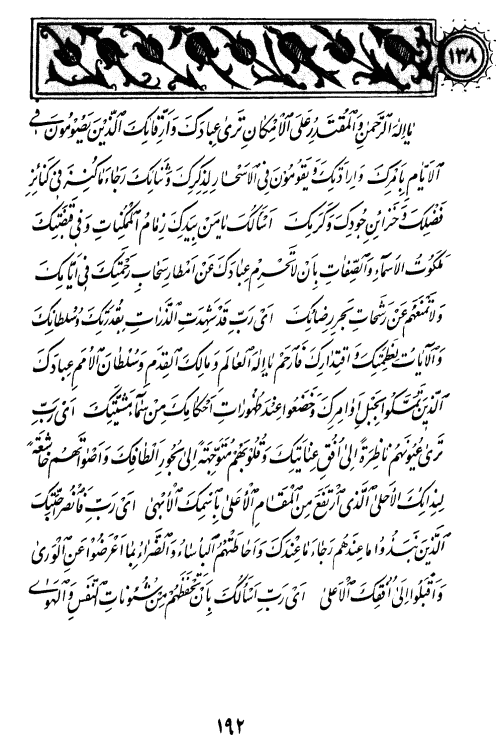 ١٣٨
يا إله الرّحمن والمقتدر على الامكان ترى عبادك وارقّائك الّذين يصومون فى
الايّام بامرك وارادتك ويقومون فى الاسحار لذكرك وثنائك رجاء ما كنز فى كنائز
فضلك وخزائن جودك وكرمك اسألك يا من بيدك زمام الممكنات وفى قبضتك
ملكوت الاسماء والصّفات بان لا تحرم عبادك عن امطار سحاب رحمتك فى ايّامك
ولا تمنعهم عن رشحات بحر رضائك اى ربّ قد شهدت الذّرّات بقدرتك وسلطانك
والآيات بعظمتك واقتدارك فارحم يا إله العالم ومالك القدم وسلطان الامم عبادك
الّذين تمسّكوا بحبل اوامرك وخضعوا عند ظهورات احكامك من سماء مشيّتك اى ربّ
ترى عيونهم ناظرة الى افق عنايتك وقلوبهم متوجّهة الى بحور الطافك واصواتهم خاشعة
لندائك الاحلى الّذى ارتفع من المقام الاعلى باسمك الابهى اى ربّ فانصر احبّتك
الّذين نبذوا ما عندهم رجاء ما عندك واحاطتهم البأساء والضّرّاء بما اعرضوا عن الورى
واقبلوا الى افقك الاعلى اى ربّ اسألك بان تحفظهم من شئونات النّفس والهوى
١٩٢